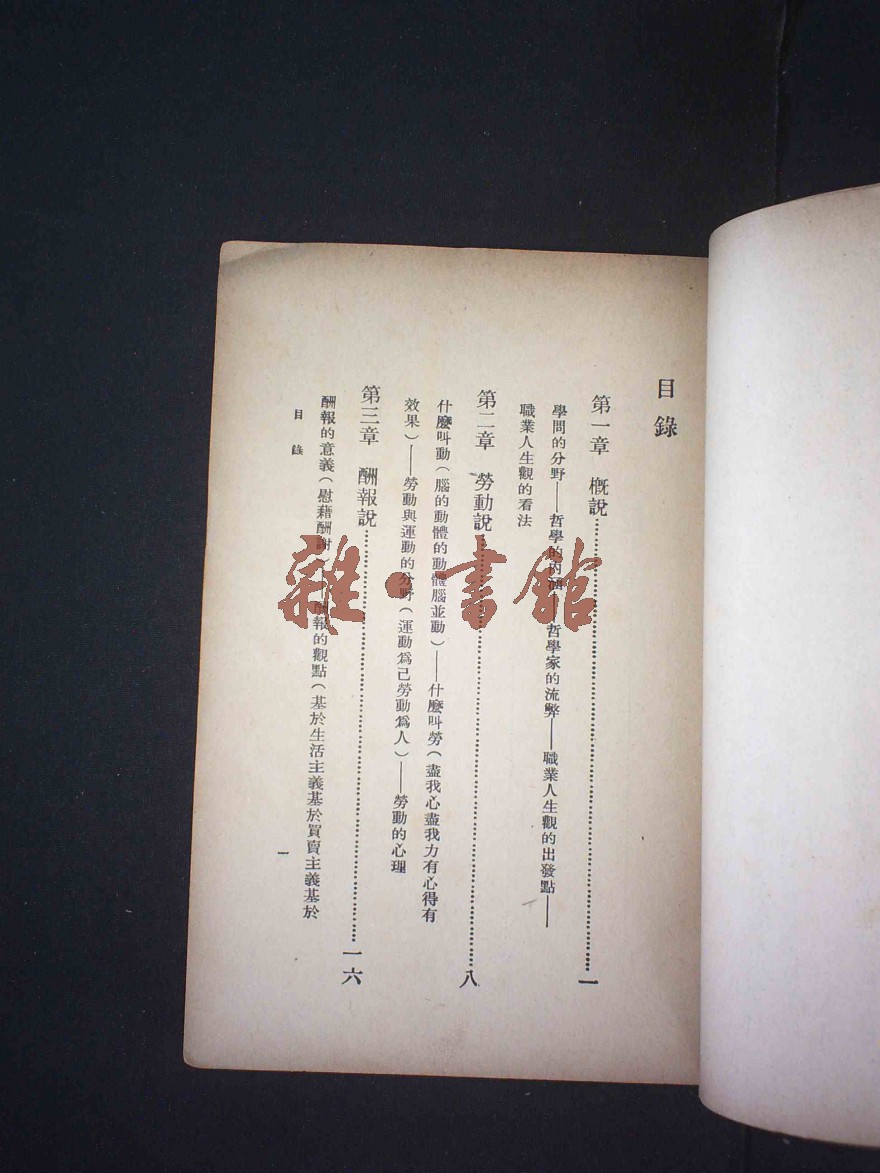 目錄
第一章 槪說……一
學問的分野——哲學的內——哲學家的流弊——職業人生觀的出發點——
職業人生觀的看法
第二章 勞動說……八
什麼叫動（腦的動體的動體腦並動）——什麼叫勞（盡我心盡我力有心得有
效果）——勞動與運動的分野（運動爲己勞動爲人）——勞動的心理
第三章 酬報說……一六
酬報的意義（慰藉酬謝）——酬報的觀點（基於生活主義基於買賣主義基於
目錄
一
雜·書館